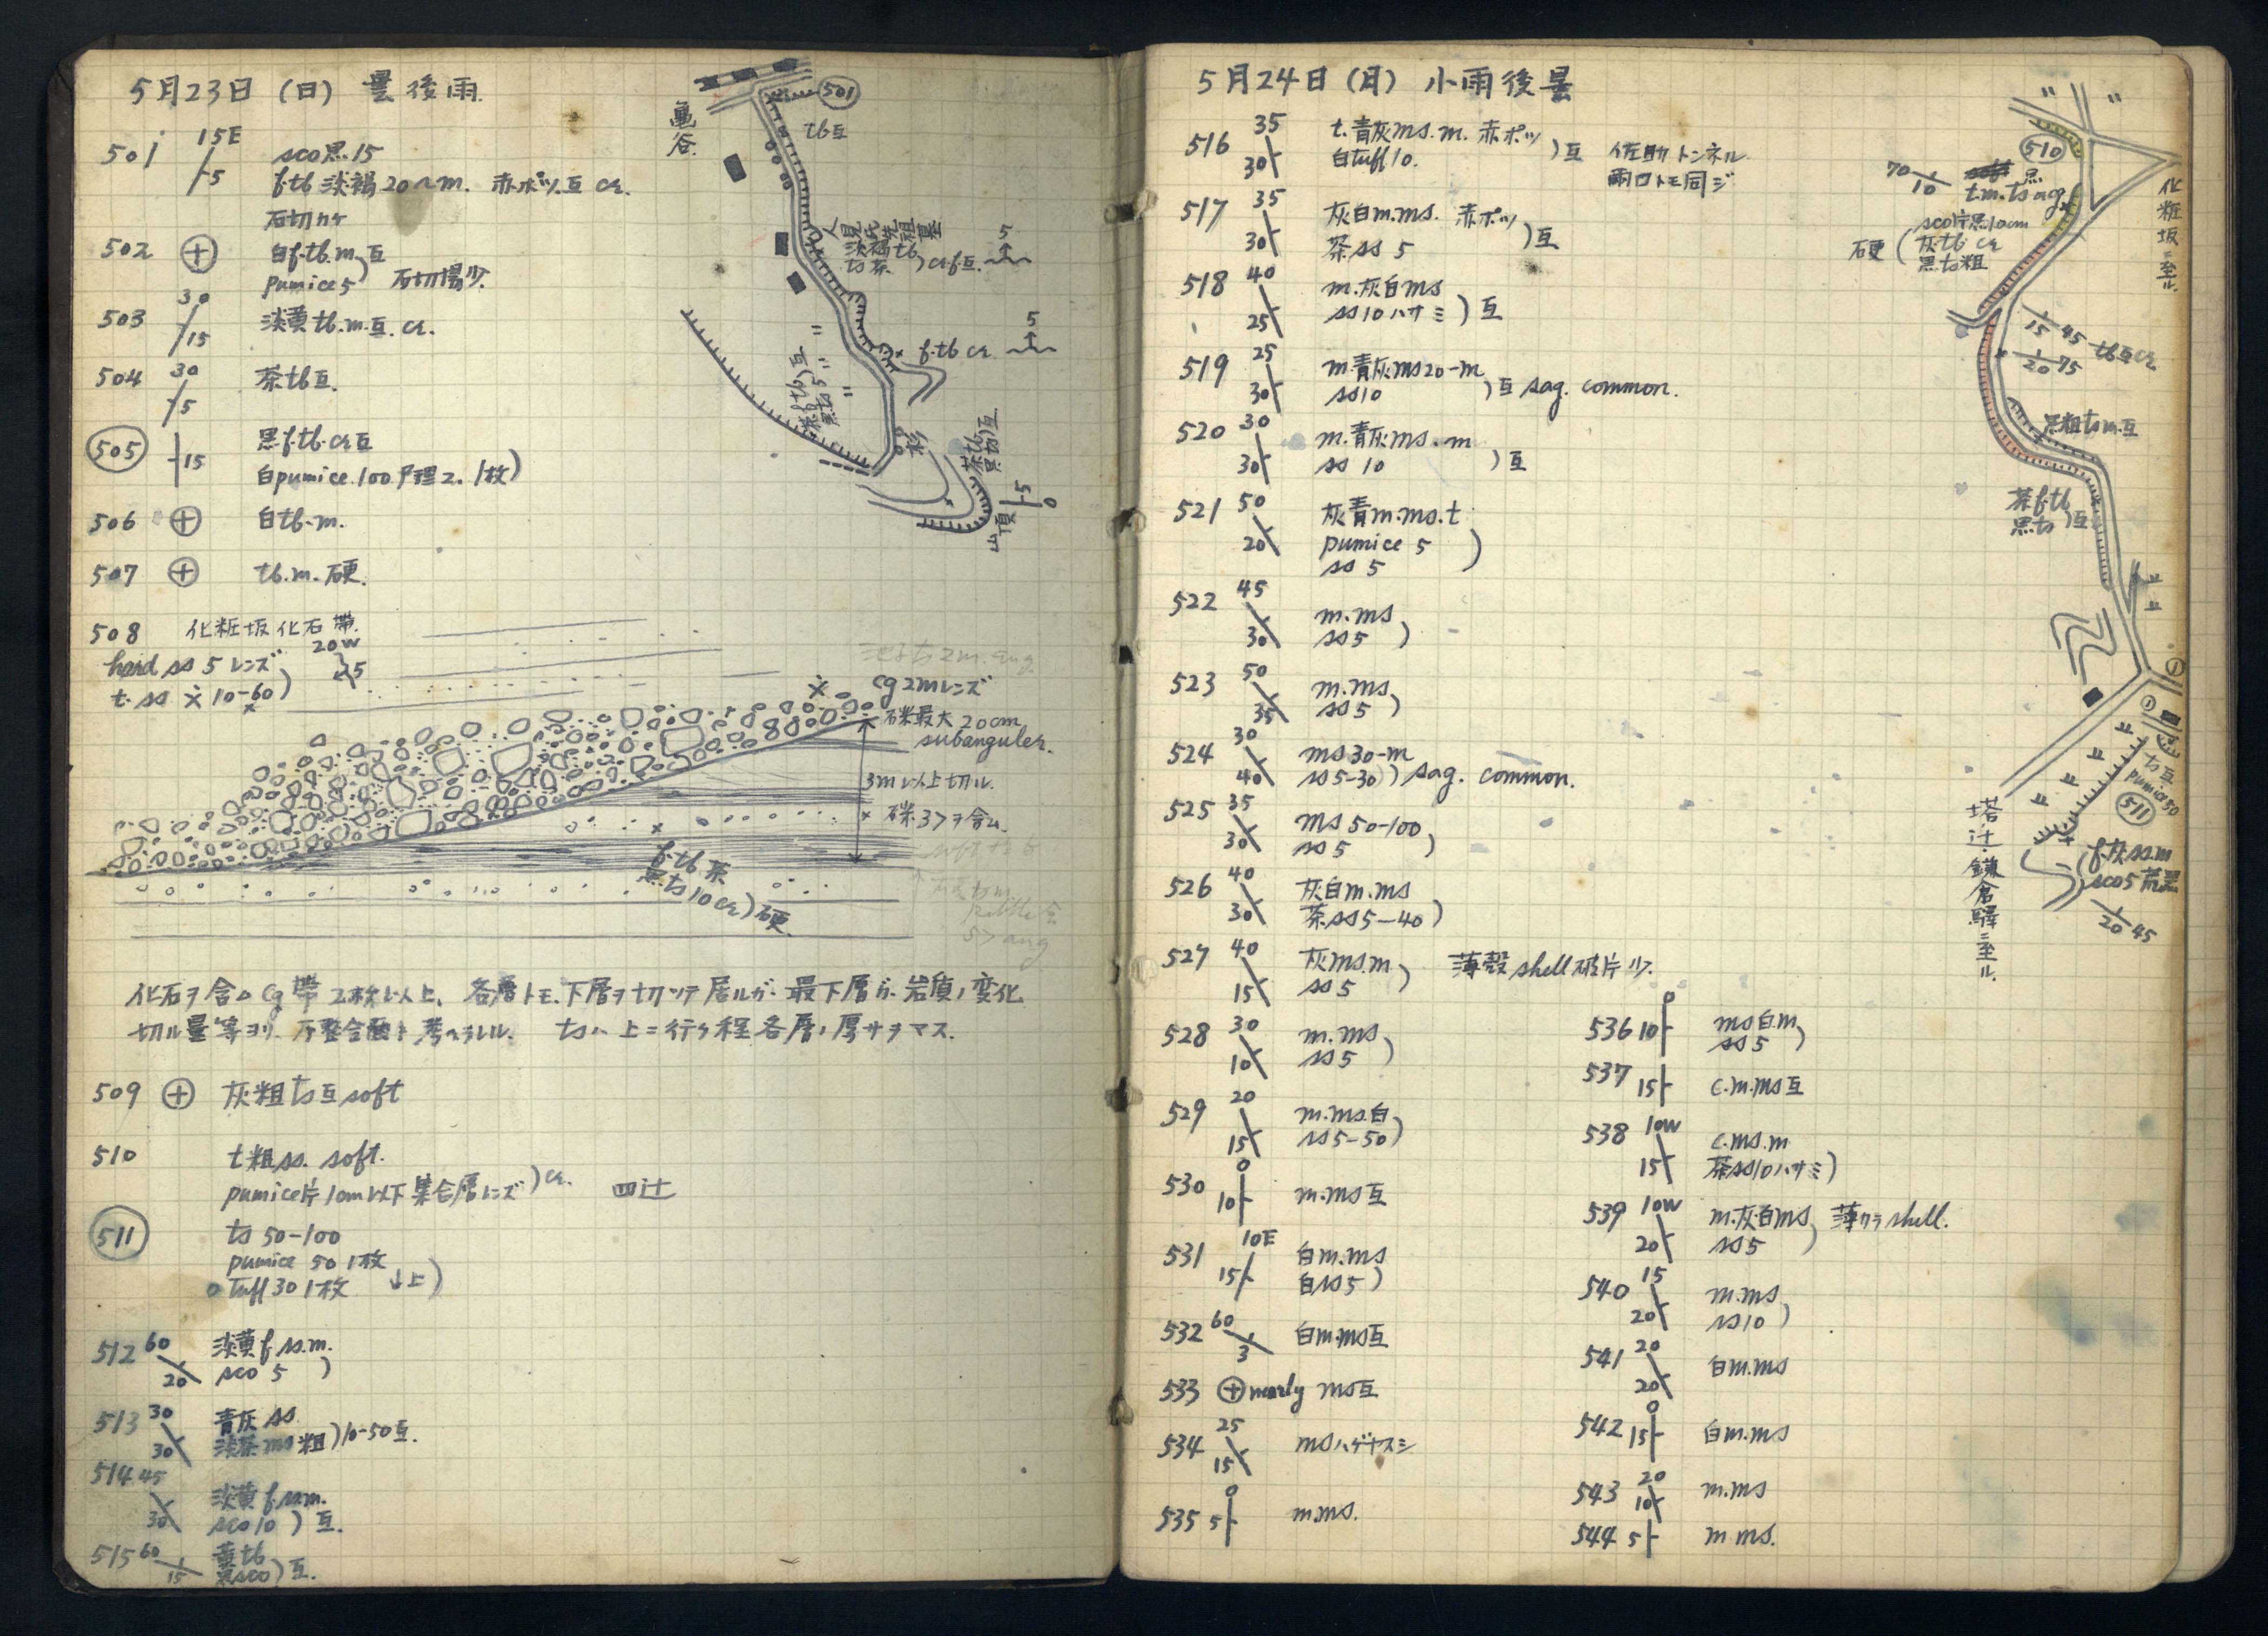 5月23日 (日) 曇後雨.
501 15E 5 sco黒.15
f.tb 淡褐20~m. 赤ポツ.互 cr.
石切場
502 ⊕ 白f.tb.m.互
pumice 5) 石切場少.
503 30 15 淡黄tb.m.互.cr.
504 30 5 茶tb互.
505 15 黒f.tb.cr互
白pumice.100 1枚)
506 ⊕ 白tb.m.
507 ⊕ tb.m.硬.
508 化粧坂化石帯.
20W 25
hard ss 5 レンズ
t.ss ẋ 10-60)
cg 2mレンズ
礫最大20cm
subanguler.
3m以上切ル.
礫.3>ヲ含ム
f.tb茶
黒ts10cr)硬.
化石ヲ含ム cg帯2枚以上、各層トモ、下層ヲ切ッテ居ルガ、最下層ガ、岩質ノ変化
切ル量等ヨリ、不整合面ト考ヘラレル. tsハ上ニ行ク程各層ノ厚サヲマス.
509 ⊕ 灰粗ts互soft
510 t粗ss. soft.
pumice片10m以下集合層レンズ)cr. 四辻
511 ts 50-100
pumice 50 1枚
Tuff 30 1枚 ↓上)
512 60 20 淡黄f ss.m.
sco 5 )
513 30 30 青灰ss
淡茶ms粗)10-50互.
514 45 30 淡黄f ss.m.
sco10 ) 互.
515 60 15 黄tb
黒sco)互.
亀谷.
501
tb互
人見氏先祖墓
淡褐tb
ts茶 )cr.f互. 5
f.tb cr 5
茶f.tb)互
黒ts 5 〃 〃
杉
茶tb
黒ts)互
山頂
5 0
5月24日 (月) 小雨後曇
516 35 30 t.青灰ms.m.赤ポツ
白tuff10. )互 佐助トンネル
両口トモ同ジ
517 35 30 灰白m.ms. 赤ポツ
茶ss 5 )互
518 40 25 m.灰白ms
ss10ハサミ )互
519 25 30 m.青灰ms20-m
ss10 )互 sag. common.
520 30 30 m.青灰ms.m
ss 10 )互
521 50 20 灰青m.ms.t
pumice 5
ss 5 )
522 45 30 m.ms
ss5 )
523 50 35 m.ms
ss5 )
524 30 40 ms30-m
ss5-30) sag. common.
525 35 30 ms50-100
ss 5 )
526 40 30 灰白m.ms
茶ss5-40)
527 40 15 灰ms.m
ss 5 ) 薄殻shell破片少.
528 30 10 m.ms
ss5 )
529 20 15 m.ms.白
ss5-50)
530 0 10 m.ms互
531 10E 15 白m.ms
白ss5)
532 60 3 白m.ms互
533 ⊕nearly ms互
534 25 15 msハゲヤスシ
535 0 5 m.ms.
536 0 10 ms白m
ss5 )
537 15 c.m.ms互
538 10W 15 c.ms.m
茶ss10ハサミ)
539 10W 20 m.灰白ms
ss5 ) 薄カラshell.
540 15 20 m.ms
ss10 )
541 20 20 白m.ms
542 0 15 白m.ms
543 20 10 m.ms
544 5 m ms.
〃 〃
510
70 10 黒
t.m.ts ag.
硬 ( sco片黒10cm
灰tb cr
黒ts粗
化粧坂ニ至ル.
15 45 tb互cr
20 75
黒粗tsm.互
茶f.tb
黒ts )互
ts互
pumice50
511
f.灰ss.m
sco5 黒
20 45
塔ノ辻.鎌倉驛ニ至ル.